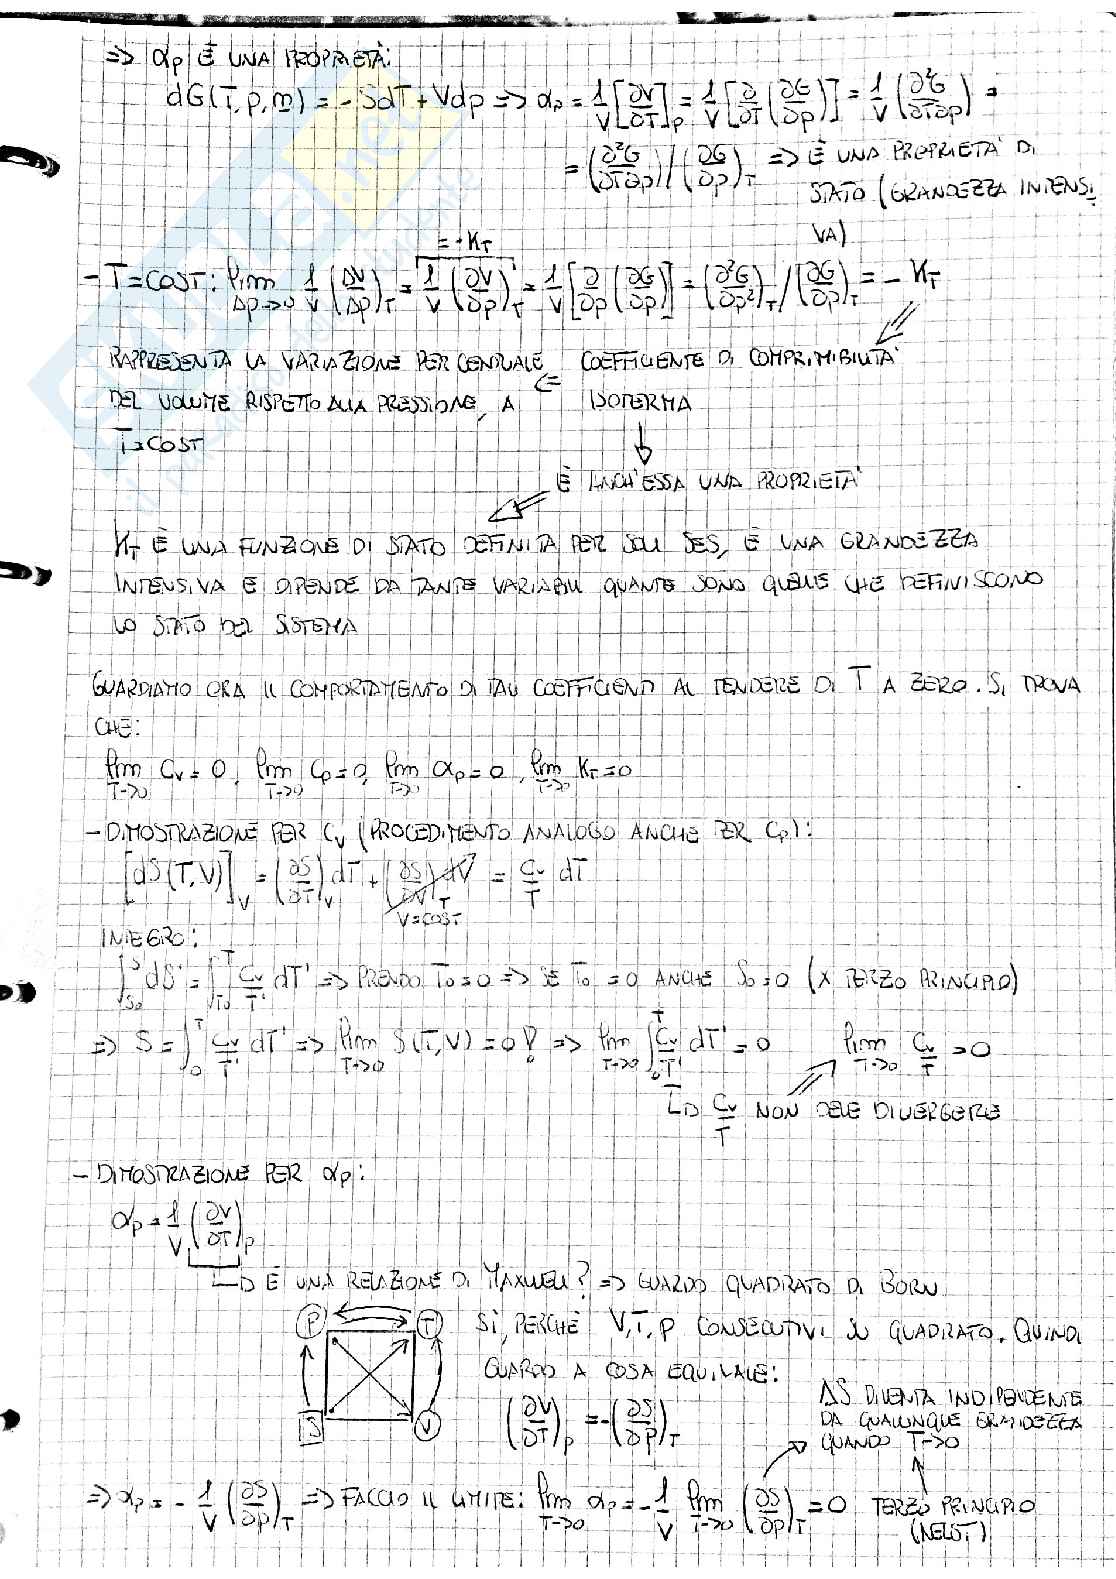 => αp È UNA PROPRIETÀ:
dG(T,p,m) = -SdT + Vdp => αp = 1/V [∂V/∂T]p = 1/V [∂/∂T (∂G/∂p)] = 1/V (∂²G/∂T∂p) =
= (∂²G/∂T∂p) / (∂G/∂p)T => È UNA PROPRIETÀ DI
STATO (GRANDEZZA INTENSI
VA)
= -KT
- T=COST: lim Δp->0 1/V (ΔV/Δp)T = 1/V (∂V/∂p)T = 1/V [∂/∂p (∂G/∂p)] = (∂²G/∂p²)T / (∂G/∂p)T = - KT
RAPPRESENTA LA VARIAZIONE PERCENTUALE <= COEFFICIENTE DI COMPRIMIBILITÀ
DEL VOLUME RISPETTO ALLA PRESSIONE, A ISOTERMA
T=COST
È ANCH'ESSA UNA PROPRIETÀ
KT È UNA FUNZIONE DI STATO DEFINITA PER SOLI SES, È UNA GRANDEZZA
INTENSIVA E DIPENDE DA TANTE VARIABILI QUANTE SONO QUELLE CHE DEFINISCONO
LO STATO DEL SISTEMA
GUARDIAMO ORA IL COMPORTAMENTO DI TALI COEFFICIENTI AL TENDERE DI T A ZERO. SI TROVA
CHE:
lim T->0 Cv = 0, lim T->0 Cp = 0, lim T->0 αp = 0, lim T->0 KT = 0
- DIMOSTRAZIONE PER Cv (PROCEDIMENTO ANALOGO ANCHE PER Cp):
[dS(T,V)]V = (∂S/∂T)V dT + (∂S/∂V)T dV = Cv/T dT
V=COST
INTEGRO:
∫S0^S dS' = ∫T0^T Cv/T' dT' => PRENDO T0=0 => SE T0=0 ANCHE S0=0 (X TERZO PRINCIPIO)
=> S = ∫0^T Cv/T' dT' => lim T->0 S(T,V) = 0 ! => lim T->0 ∫0^T Cv/T' dT' = 0 lim T->0 Cv/T = 0
Cv/T NON DEVE DIVERGERE
- DIMOSTRAZIONE PER αp:
αp = 1/V (∂V/∂T)p
È UNA RELAZIONE DI MAXWELL? => GUARDO QUADRATO DI BORN
P T
SÌ, PERCHÈ V,T,P CONSECUTIVI SU QUADRATO. QUINDI
GUARDO A COSA EQUIVALE:
S V
(∂V/∂T)p = -(∂S/∂p)T
ΔS DIVENTA INDIPENDENTE
DA QUALUNQUE GRANDEZZA
QUANDO T->0
=> αp = - 1/V (∂S/∂p)T => FACCIO IL LIMITE: lim T->0 αp = - 1/V lim T->0 (∂S/∂p)T = 0 TERZO PRINCIPIO